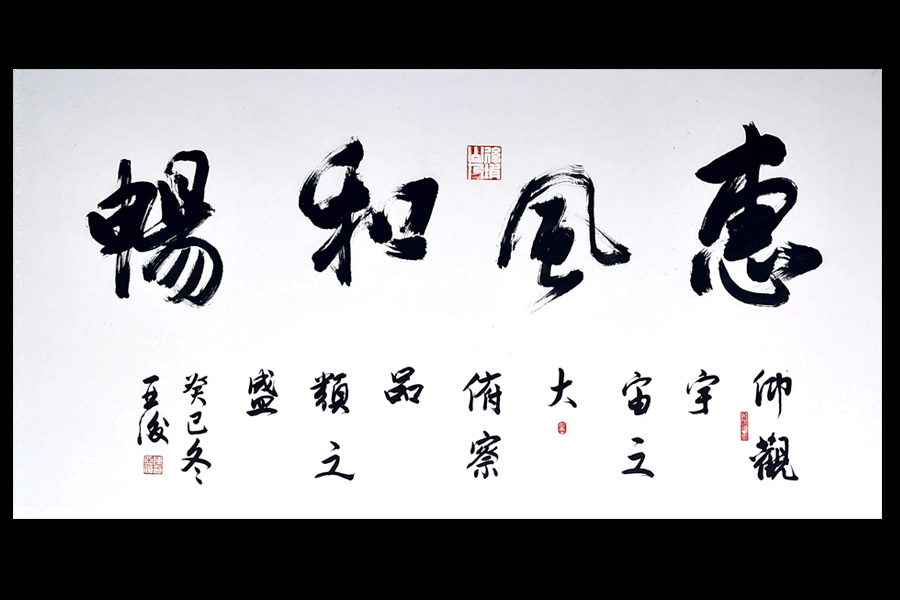 惠風和暢
仰觀
宇
宙之
大
俯察
品
類之
盛
癸巳冬
王